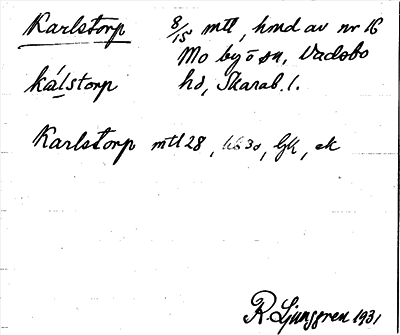 Karlstorp 8/15 mtl, hmd av nr 16
Mo by o sn, Vadsbo
kálstorp hd, Skarab. l.
Karlstorp mtl 28, Gk, ek
R. Ljunggren 1931